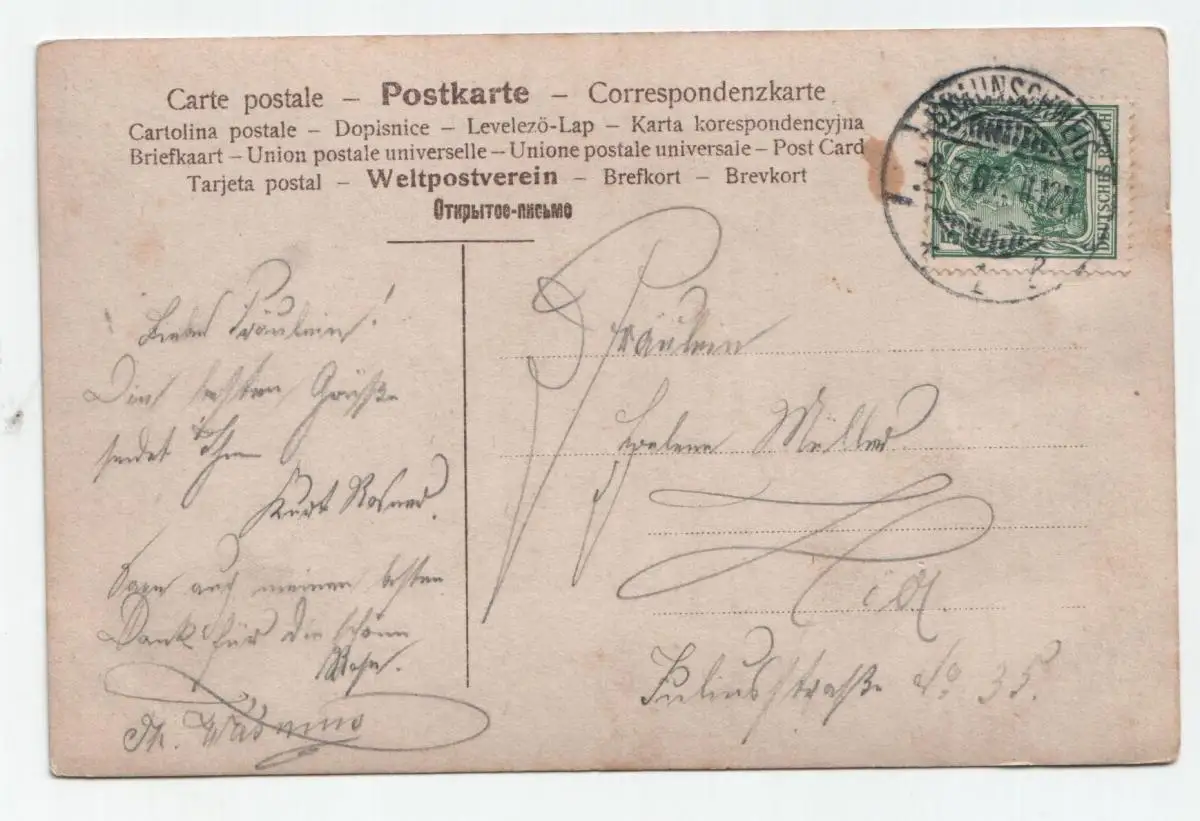 Carte postale – Postkarte – Correspondenzkarte
Cartolina postale – Dopisnice – Levelező-Lap – Karta korespondencyjna
Briefkaart – Union postale universelle – Unione postale universale – Post Card
Tarjeta postal – Weltpostverein – Brefkort – Brevkort
Открытое-письмо
BRAUNSCHWEIG
7. 07. 11-12
DEUTSCHES REICH
Liebes Fräulein!
Die besten Grüße
sendet Ihnen
Kurt Rosner.
Sage auch meinen besten
Dank für die schöne
Rose.
Fräulein
Helene Müller
hier.
Juliusstraße No 35.